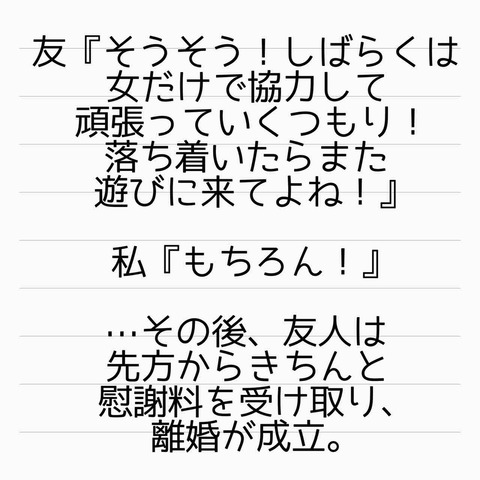 友『そうそう！しばらくは
女だけで協力して
頑張っていくつもり！
落ち着いたらまた
遊びに来てよね！』
私『もちろん！』
…その後、友人は
先方からきちんと
慰謝料を受け取り、
離婚が成立。